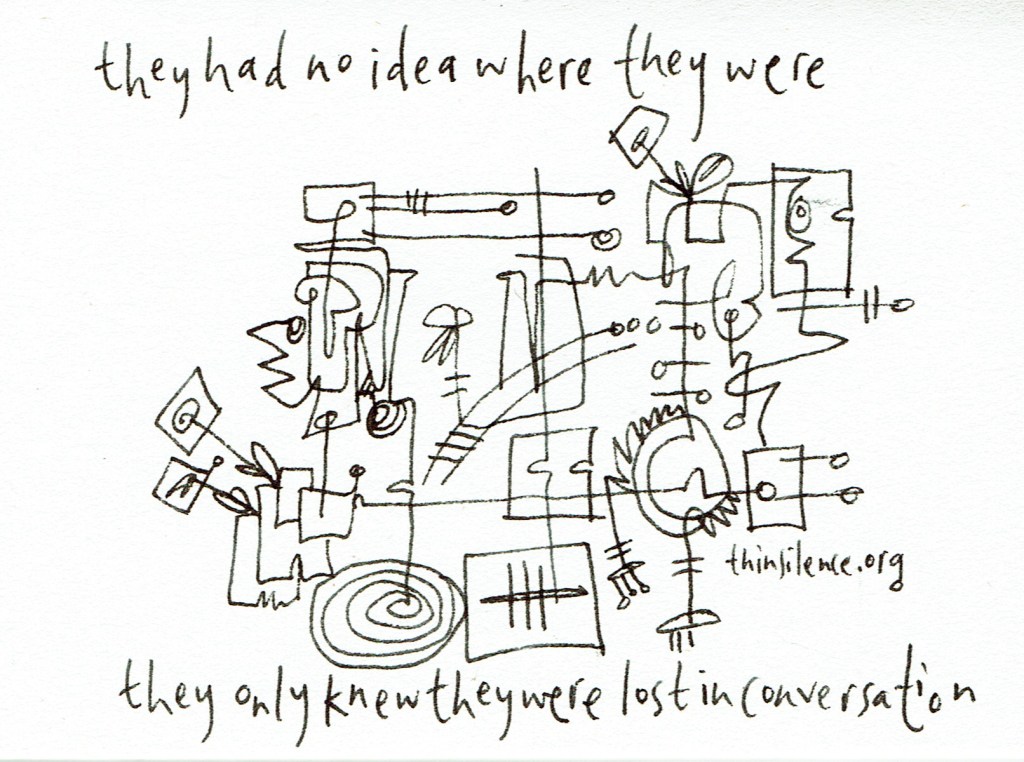 they had no idea where they were
thinsilence.org
they only knew they were lost in conversation